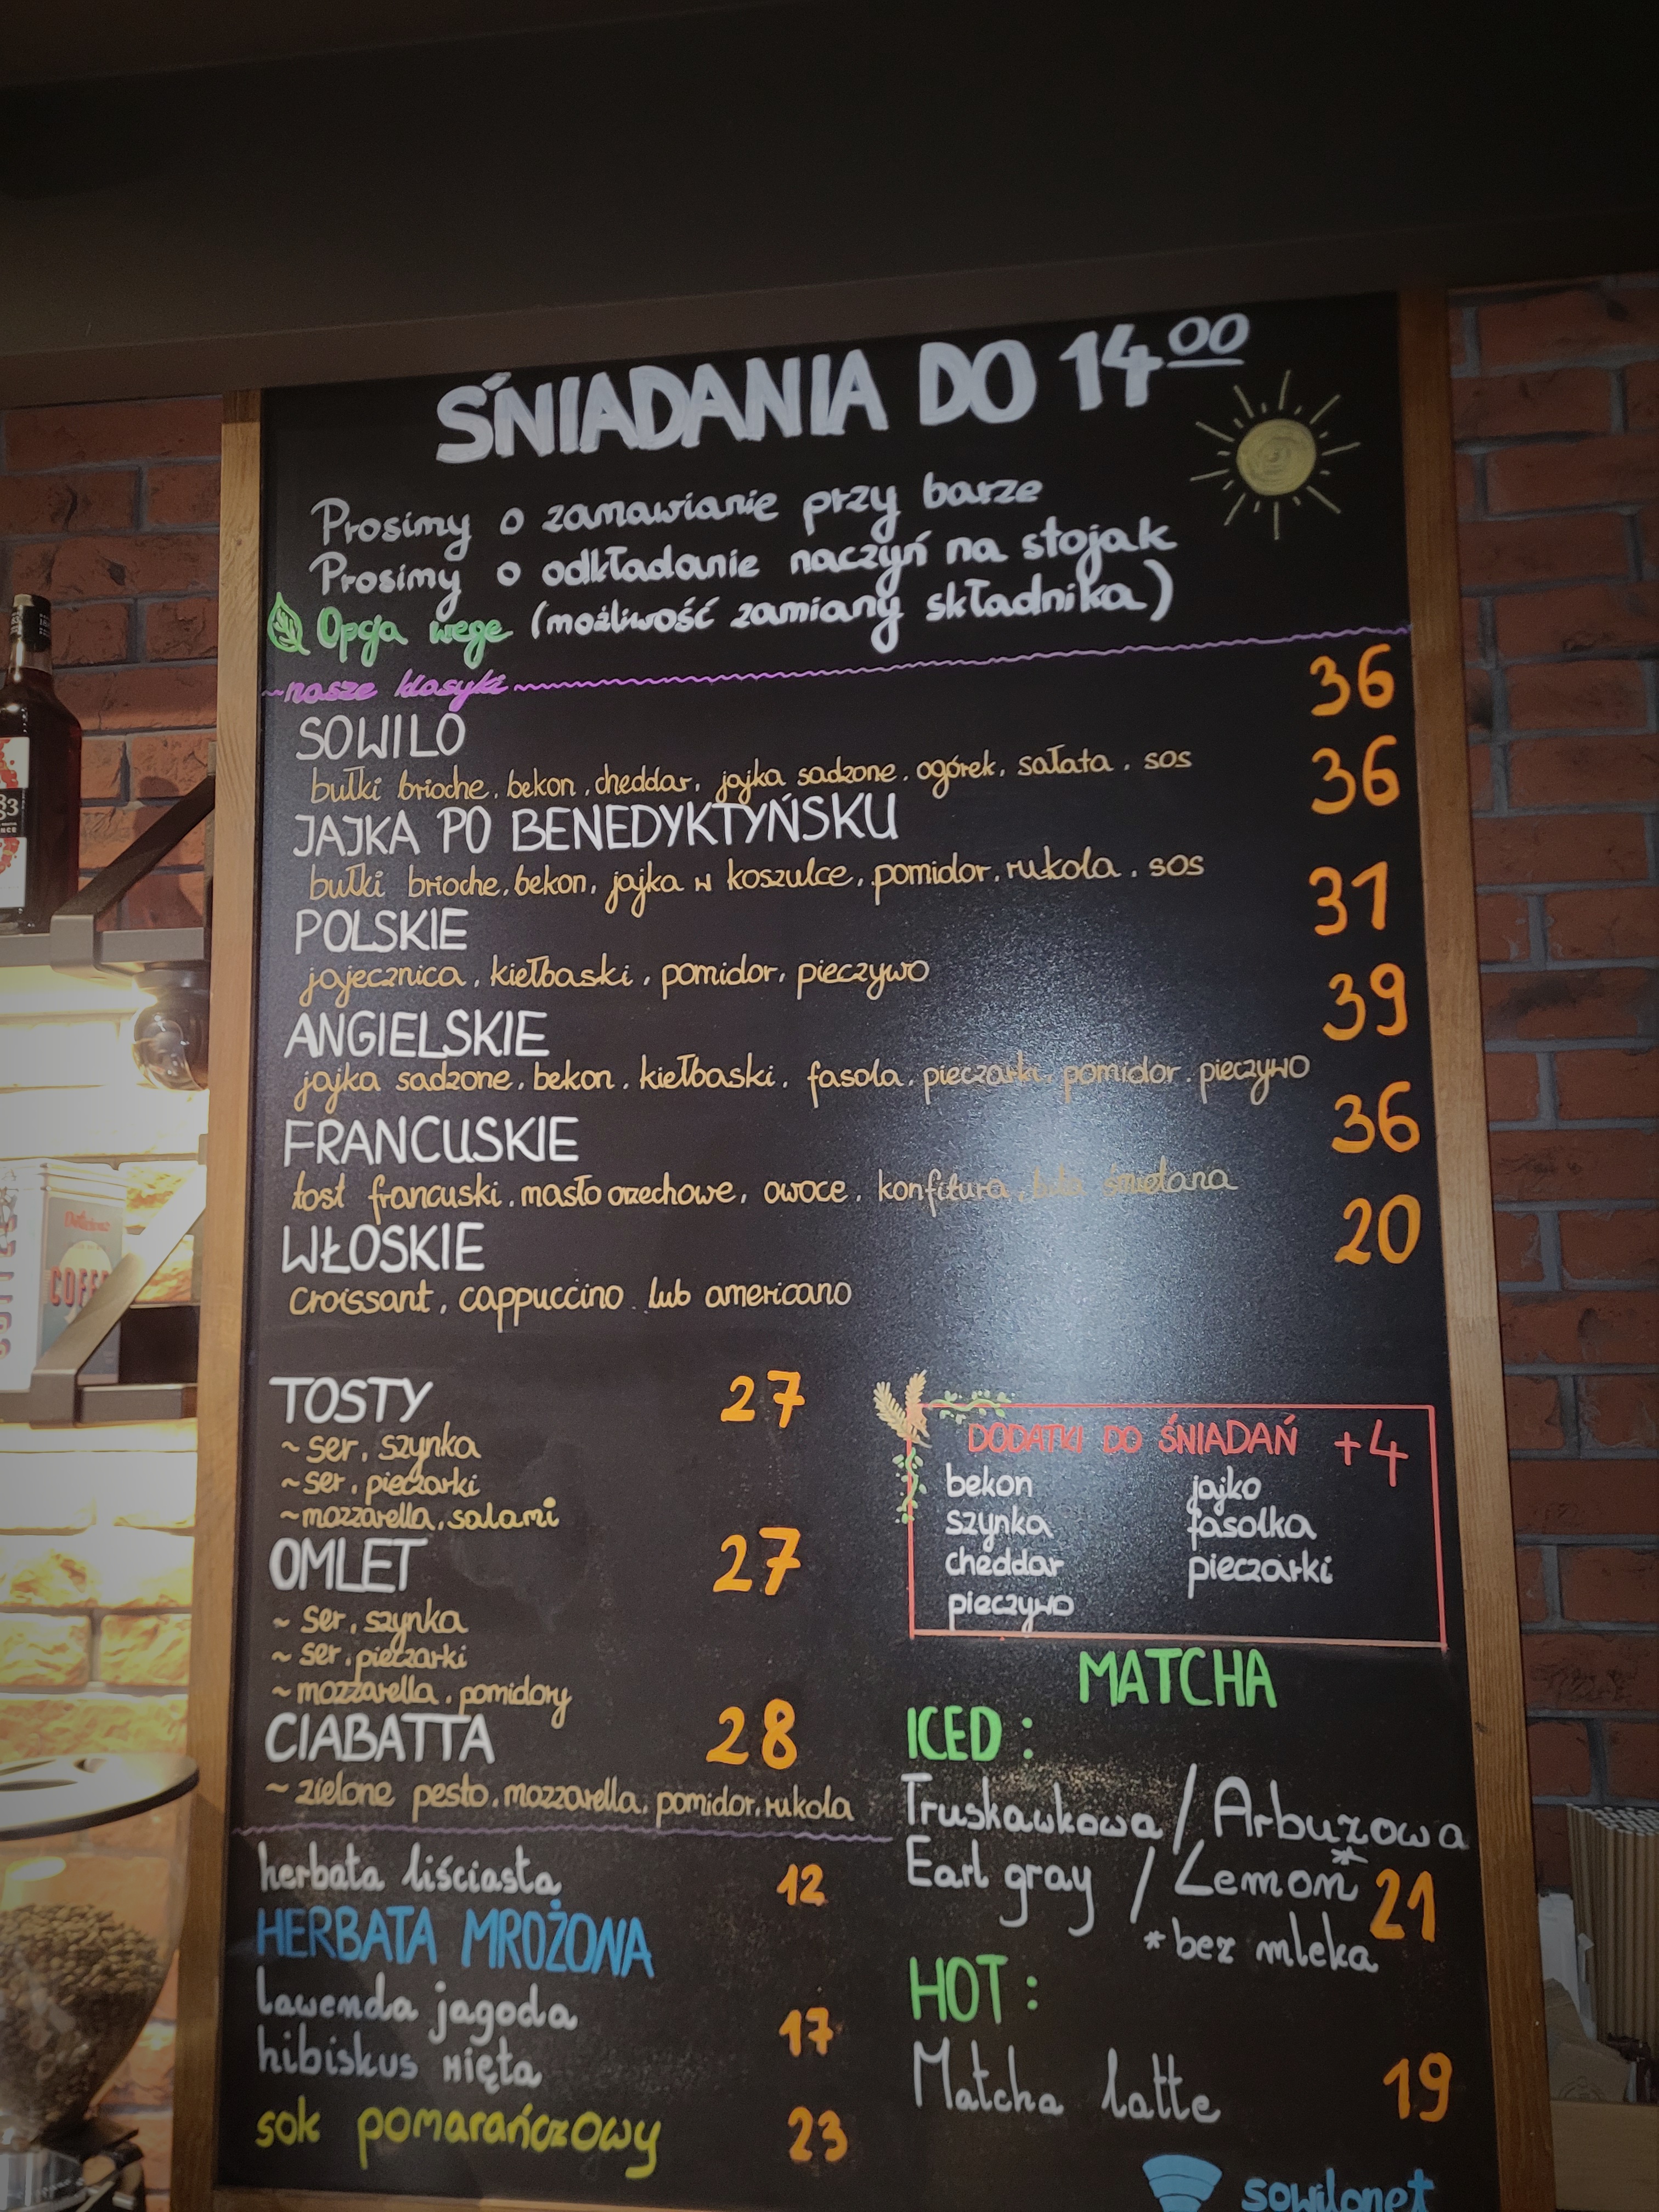 ŚNIADANIA DO 14⁰⁰
Prosimy o zamawianie przy barze
Prosimy o odkładanie naczyń na stojak
Opcja wege (możliwość zamiany składnika)
~nasze klasyki~
SOWILÓ 36
bułki brioche, bekon, cheddar, jajka sadzone, ogórek, sałata, sos
JAJKA PO BENEDYKTYŃSKU 36
bułki brioche, bekon, jajka w koszulce, pomidor, rukola, sos
POLSKIE 31
jajecznica, kiełbaski, pomidor, pieczywo
ANGIELSKIE 39
jajka sadzone, bekon, kiełbaski, fasola, pieczarki, pomidor, pieczywo
FRANCUSKIE 36
tost francuski, masło orzechowe, owoce, konfitura, bita śmietana
WŁOSKIE 20
croissant, cappuccino lub americano
TOSTY 27
~ ser, szynka
~ ser, pieczarki
~ mozzarella, salami
OMLET 27
~ ser, szynka
~ ser, pieczarki
~ mozzarella, pomidory
CIABATTA 28
~ zielone pesto, mozzarella, pomidor, rukola
herbata liściasta 12
HERBATA MROŻONA
lawenda jagoda
hibiskus mięta 17
sok pomarańczowy 23
DODATKI DO ŚNIADAŃ +4
bekon jajko
szynka fasolka
cheddar pieczarki
pieczywo
MATCHA
ICED:
Truskawkowa / Arbuzowa
Earl gray / Lemon* 21
*bez mleka
HOT:
Matcha latte 19
sowilonet
COFFE